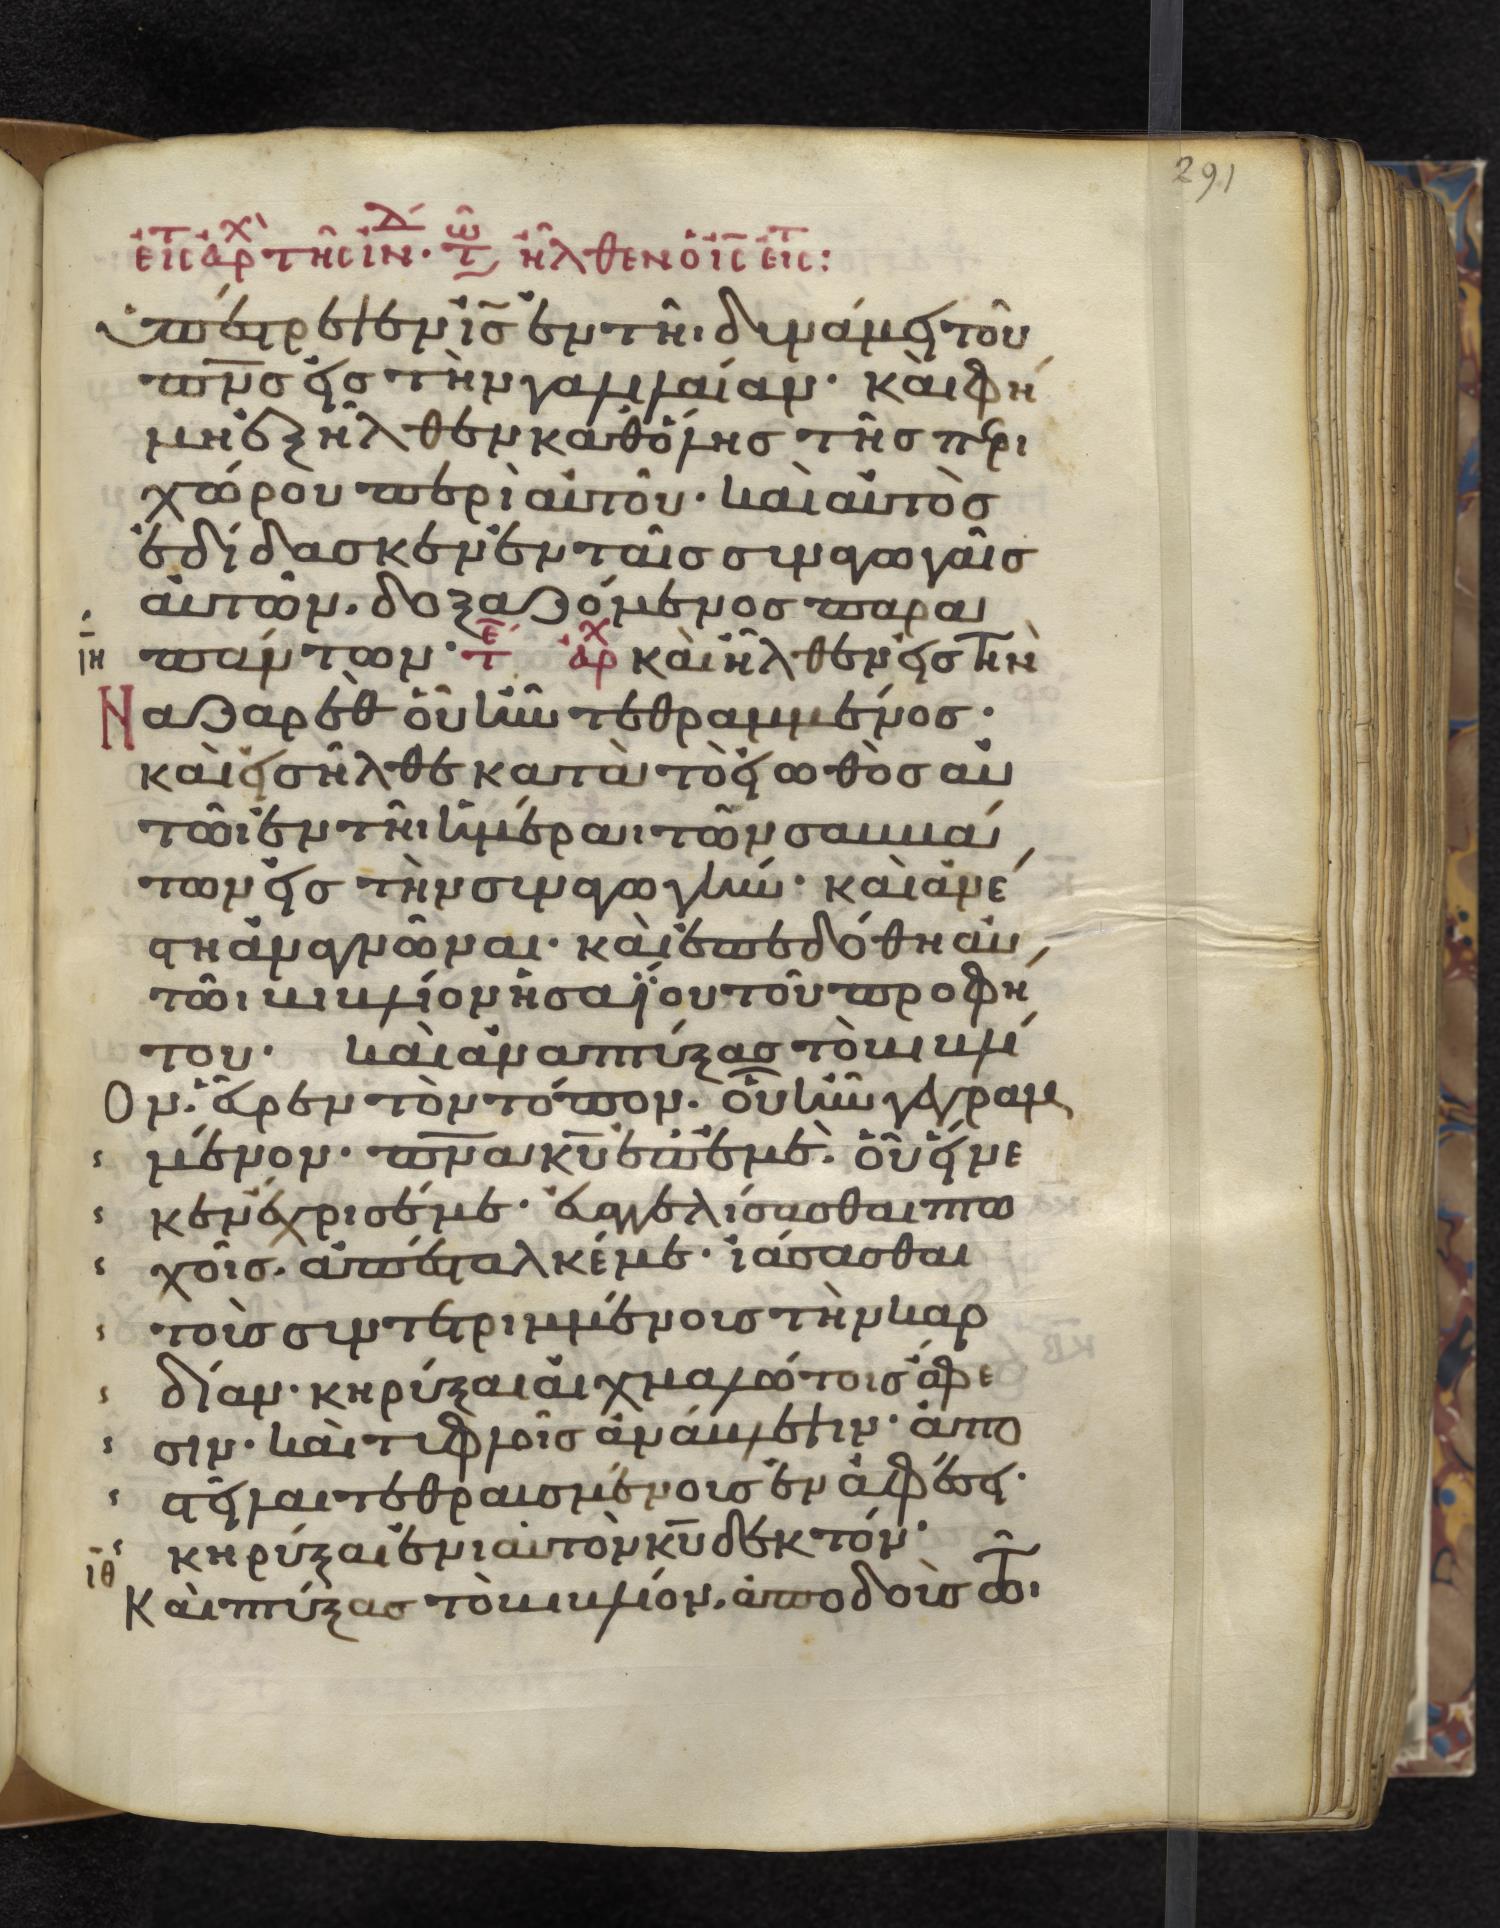 291
ὑπέστρεψεν ὁ ἰς ἐν τῆι δυνάμει τοῦ
πνς εἰς τὴν γαλιλαίαν· καὶ φή
μη ἐξῆλθεν καθ' ὅλης τῆς περι
χώρου περὶ αὐτοῦ· καὶ αὐτὸς
ἐδίδασκεν ἐν ταῖς συναγωγαῖς
αὐτῶν. δοξαζόμενος παρὰ
ιη πάντων· τε αρχ καὶ ἦλθεν εἰς τὴν
Ναζαρὲθ οὗ ἦν τεθραμμένος·
καὶ εἰσῆλθε κατὰ τὸ εἰωθὸς αὐ
τῶι ἐν τῆι ἡμέραι τῶν σαββά
των εἰς τὴν συναγωγήν· καὶ ἀνέ
στη ἀναγνῶναι· καὶ ἐπεδόθη αὐ
τῶι βιβλίον ἠσαΐου τοῦ προφή
του· καὶ ἀναπτύξας τὸ βιβλί
Ον. εὗρεν τὸν τόπον. οὗ ἦν γεγραμ
μένον· πνα κυ ἐπ' ἐμέ. οὗ εἵνε
κεν ἔχρισέ με· εὐαγγελίσασθαι πτω
χοῖς. ἀπέσταλκέ με· ἰάσασθαι
τοὺς συντετριμμένους τὴν καρ
δίαν· κηρύξαι αἰχμαλώτοις ἄφε
σιν· καὶ τυφλοῖς ἀνάβλεψιν· ἀπο
στεῖλαι τεθραυσμένους ἐν ἀφέσει·
κηρύξαι ἐνιαυτὸν κυ δεκτόν·
ιθ Καὶ πτύξας τὸ βιβλίον. ἀποδοὺς τῶι